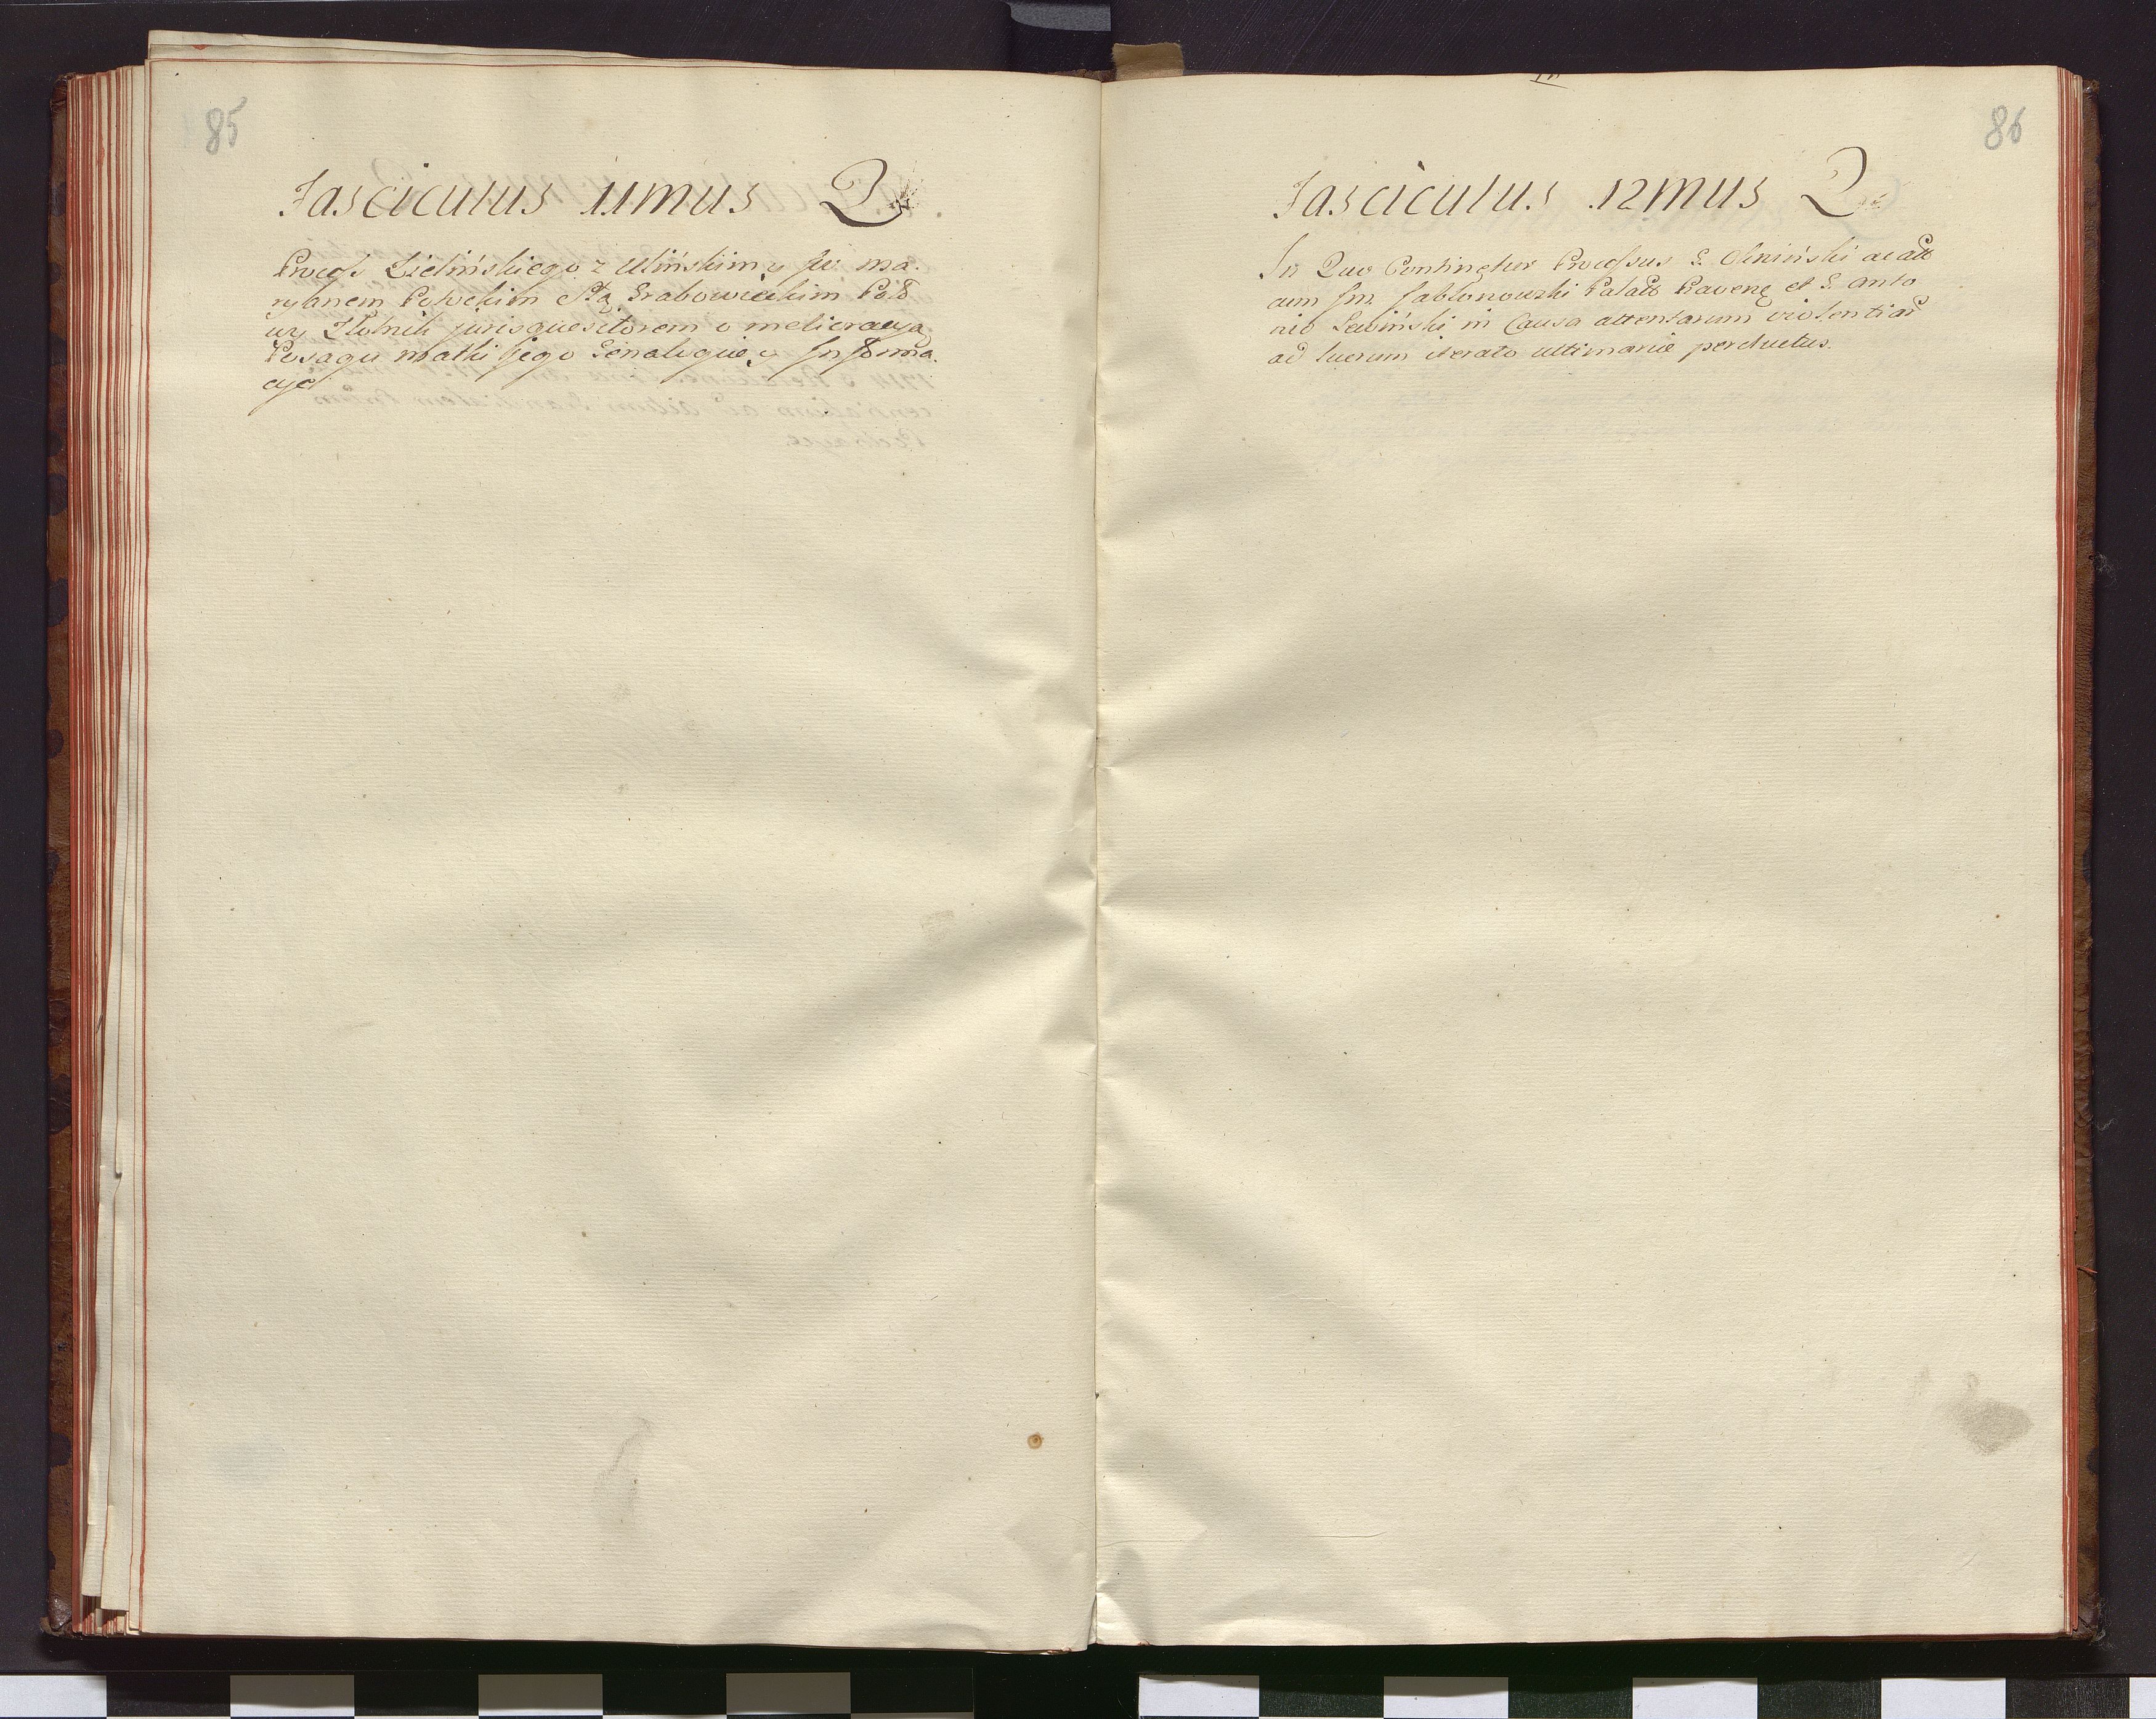 85
Fasciculus 11mus Q
Process Zielińskiego z Ulińskim y Jw: ma.
rybnem Potockim Stą Grabowieckim Poss
Złotnik jurisquesitorem o melioracyą
Posagu matki jego Genalogie y Informa.
cye
86
Fasciculus 12mus Q
In Quo Continetur Processus G. Okniński ac all
cum Im. Jabłonowski Palatt Ravenę et G. Anto
nio Lewiński in Causa attentarum violentiar
ad lucrum iterato ultimarie perductus.